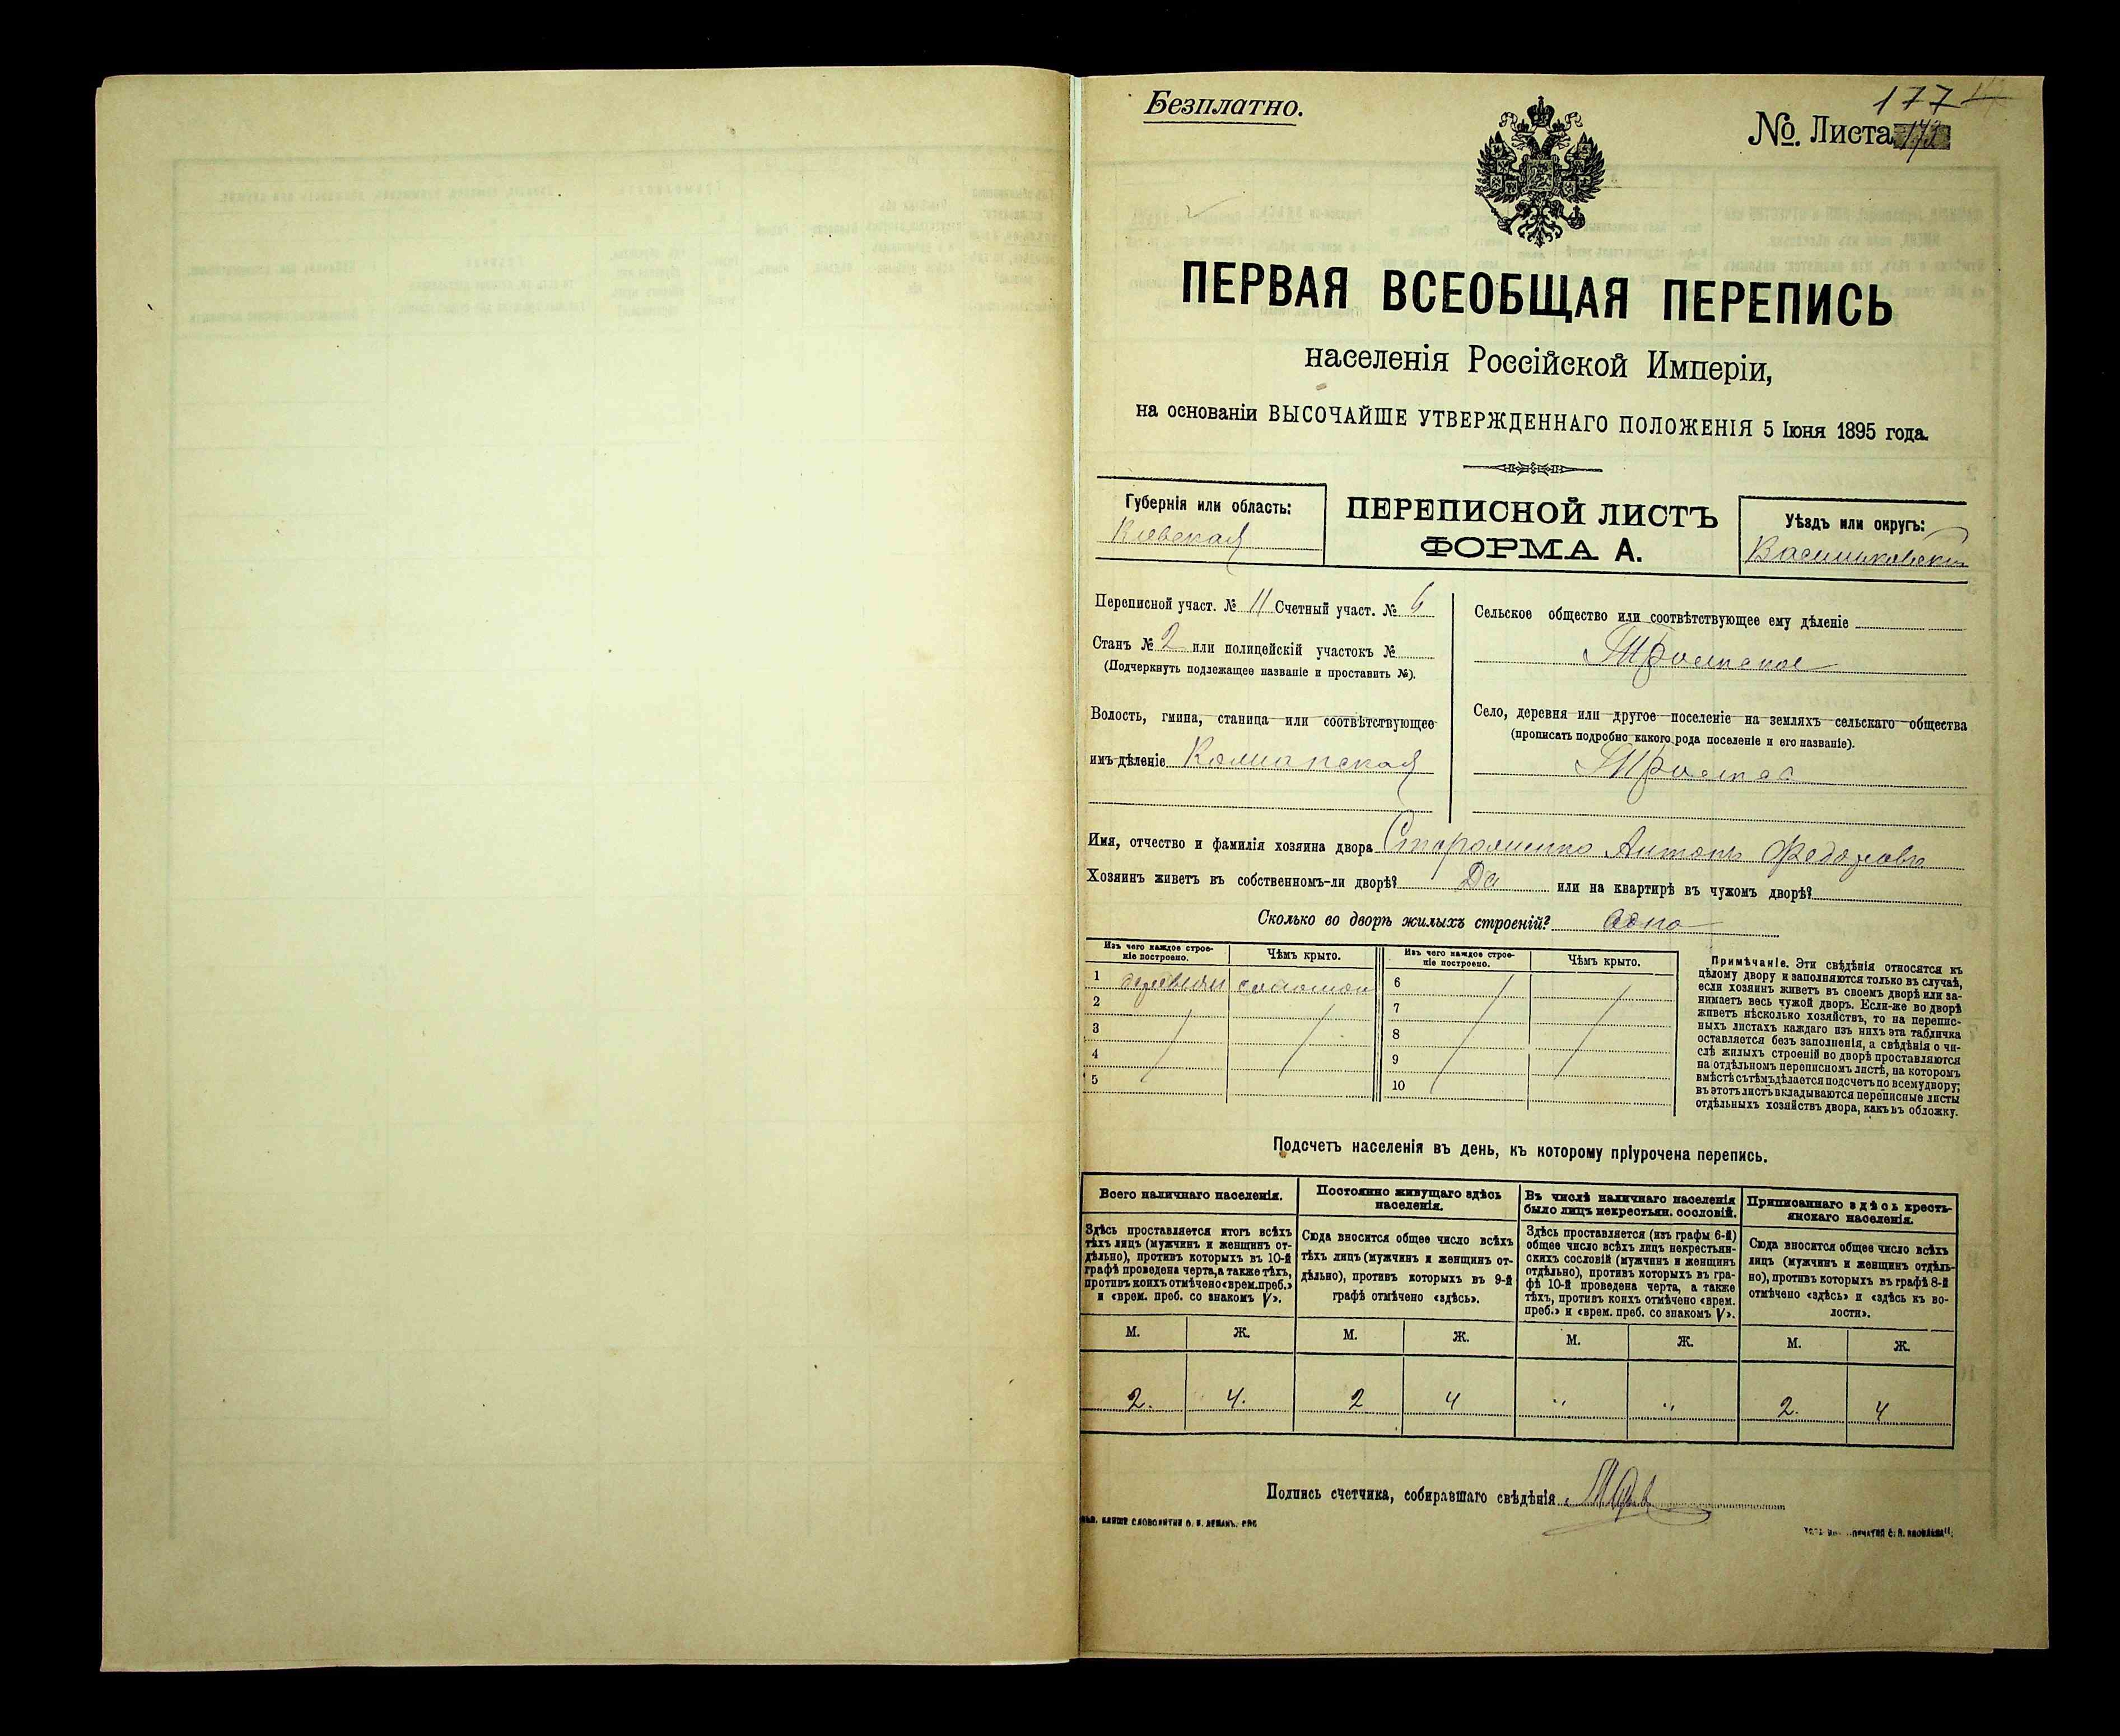 Безплатно.
177
№. Листа
ПЕРВАЯ ВСЕОБЩАЯ ПЕРЕПИСЬ
населенія Россійской Имперіи,
на основаніи ВЫСОЧАЙШЕ УТВЕРЖДЕННАГО ПОЛОЖЕНІЯ 5 Іюня 1895 года.
Губернія или область:
Кіевская
ПЕРЕПИСНОЙ ЛИСТЪ
ФОРМА А.
Уѣздъ или округъ:
Васильковскій
Переписной участ. № 11 Счетный участ. № 6
Станъ № 2 или полицейскій участокъ №
(Подчеркнуть подлежащее названіе и проставить №).
Волость, гмина, станица или соотвѣтствующее
имъ дѣленіе
Сельское общество или соотвѣтствующее ему дѣленіе
Село, деревня или другое поселеніе на земляхъ сельскаго общества
(прописать подробно какого рода поселеніе и его названіе).
Имя, отчество и фамилія хозяина двора Антонъ Федоровъ
Хозяинъ живетъ въ собственномъ-ли дворѣ? Да или на квартирѣ въ чужомъ дворѣ?
Сколько во дворѣ жилыхъ строеній? Одно
Изъ чего каждое строеніе построено.
Чѣмъ крыто.
Изъ чего каждое строеніе построено.
Чѣмъ крыто.
1
2
3
4
5
6
7
8
9
10
Примѣчаніе. Эти свѣдѣнія относятся къ
цѣлому двору и заполняются только въ случаѣ,
если хозяинъ живетъ въ своемъ дворѣ или за-
нимаетъ весь чужой дворъ. Если-же во дворѣ
живетъ нѣсколько хозяйствъ, то на перепис-
ныхъ листахъ каждаго изъ нихъ эта табличка
оставляется безъ заполненія, а свѣдѣнія о чи-
слѣ жилыхъ строеній во дворѣ проставляются
на отдѣльномъ переписномъ листѣ, на которомъ
вмѣстѣ съ тѣмъ дѣлается подсчетъ по всему двору;
въ этотъ листъ вкладываются переписные листы
отдѣльныхъ хозяйствъ двора, какъ въ обложку.
Подсчетъ населенія въ день, къ которому пріурочена перепись.
Всего наличнаго населенія.
Здѣсь проставляется итогъ всѣхъ
тѣхъ лицъ (мужчинъ и женщинъ от-
дѣльно), противъ которыхъ въ 10-й
графѣ проведена черта, а также тѣхъ,
противъ коихъ отмѣчено «врем. преб.»
и «врем. преб. со знакомъ V».
Постоянно живущаго здѣсь
населенія.
Сюда вносится общее число всѣхъ
тѣхъ лицъ (мужчинъ и женщинъ от-
дѣльно), противъ которыхъ въ 9-й
графѣ отмѣчено «здѣсь».
Въ числѣ наличнаго населенія
было лицъ некрестьян. сословій.
Здѣсь проставляется (изъ графы 6-й)
общее число всѣхъ лицъ некрестьян-
скихъ сословій (мужчинъ и женщинъ
отдѣльно), противъ которыхъ въ гра-
фѣ 10-й проведена черта, а также
тѣхъ, противъ коихъ отмѣчено «врем.
преб.» и «врем. преб. со знакомъ V».
Приписаннаго здѣсь кресть-
янскаго населенія.
Сюда вносится общее число всѣхъ
лицъ (мужчинъ и женщинъ отдѣль-
но), противъ которыхъ въ графѣ 8-й
отмѣчено «здѣсь» и «здѣсь къ во-
лости».
М. Ж. М. Ж. М. Ж. М. Ж.
2. 4. 2 4 " " 2. 4
Подпись счетчика, собиравшаго свѣдѣнія